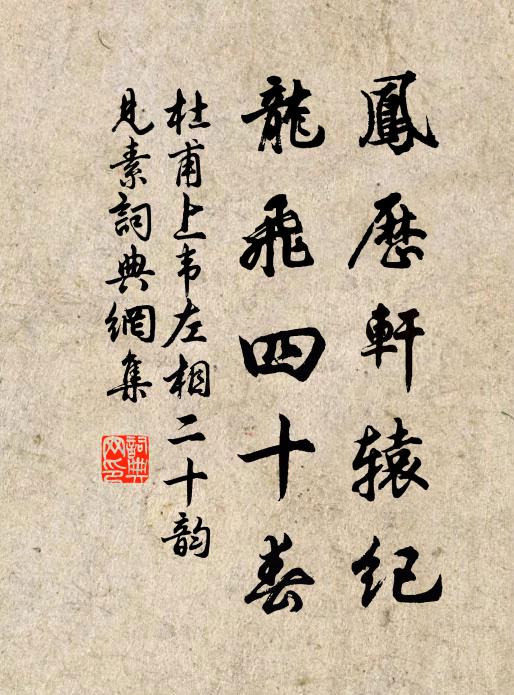 鳳歷軒辕紀
龍飛四十春
杜甫上韦左相二十韵
見素詞典網集
詞典網印